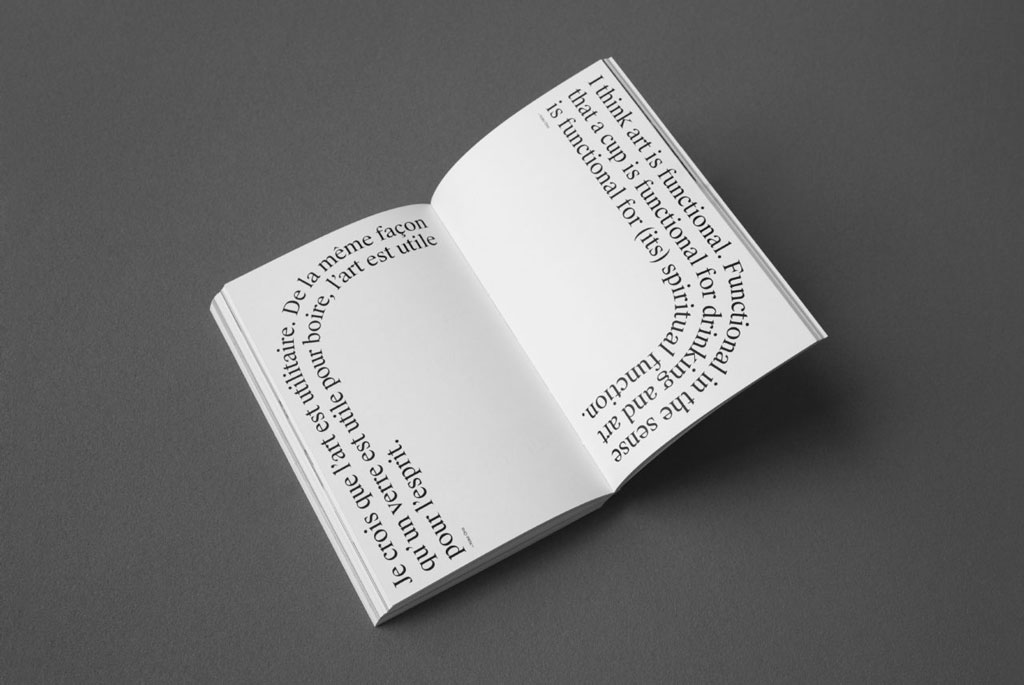 Je crois que l'art est utilitaire. De la même façon
qu'un verre est utile pour boire, l'art est utile
pour l'esprit.
I think art is functional. Functional in the sense
that a cup is functional for drinking and art
is functional for (its) spiritual function.